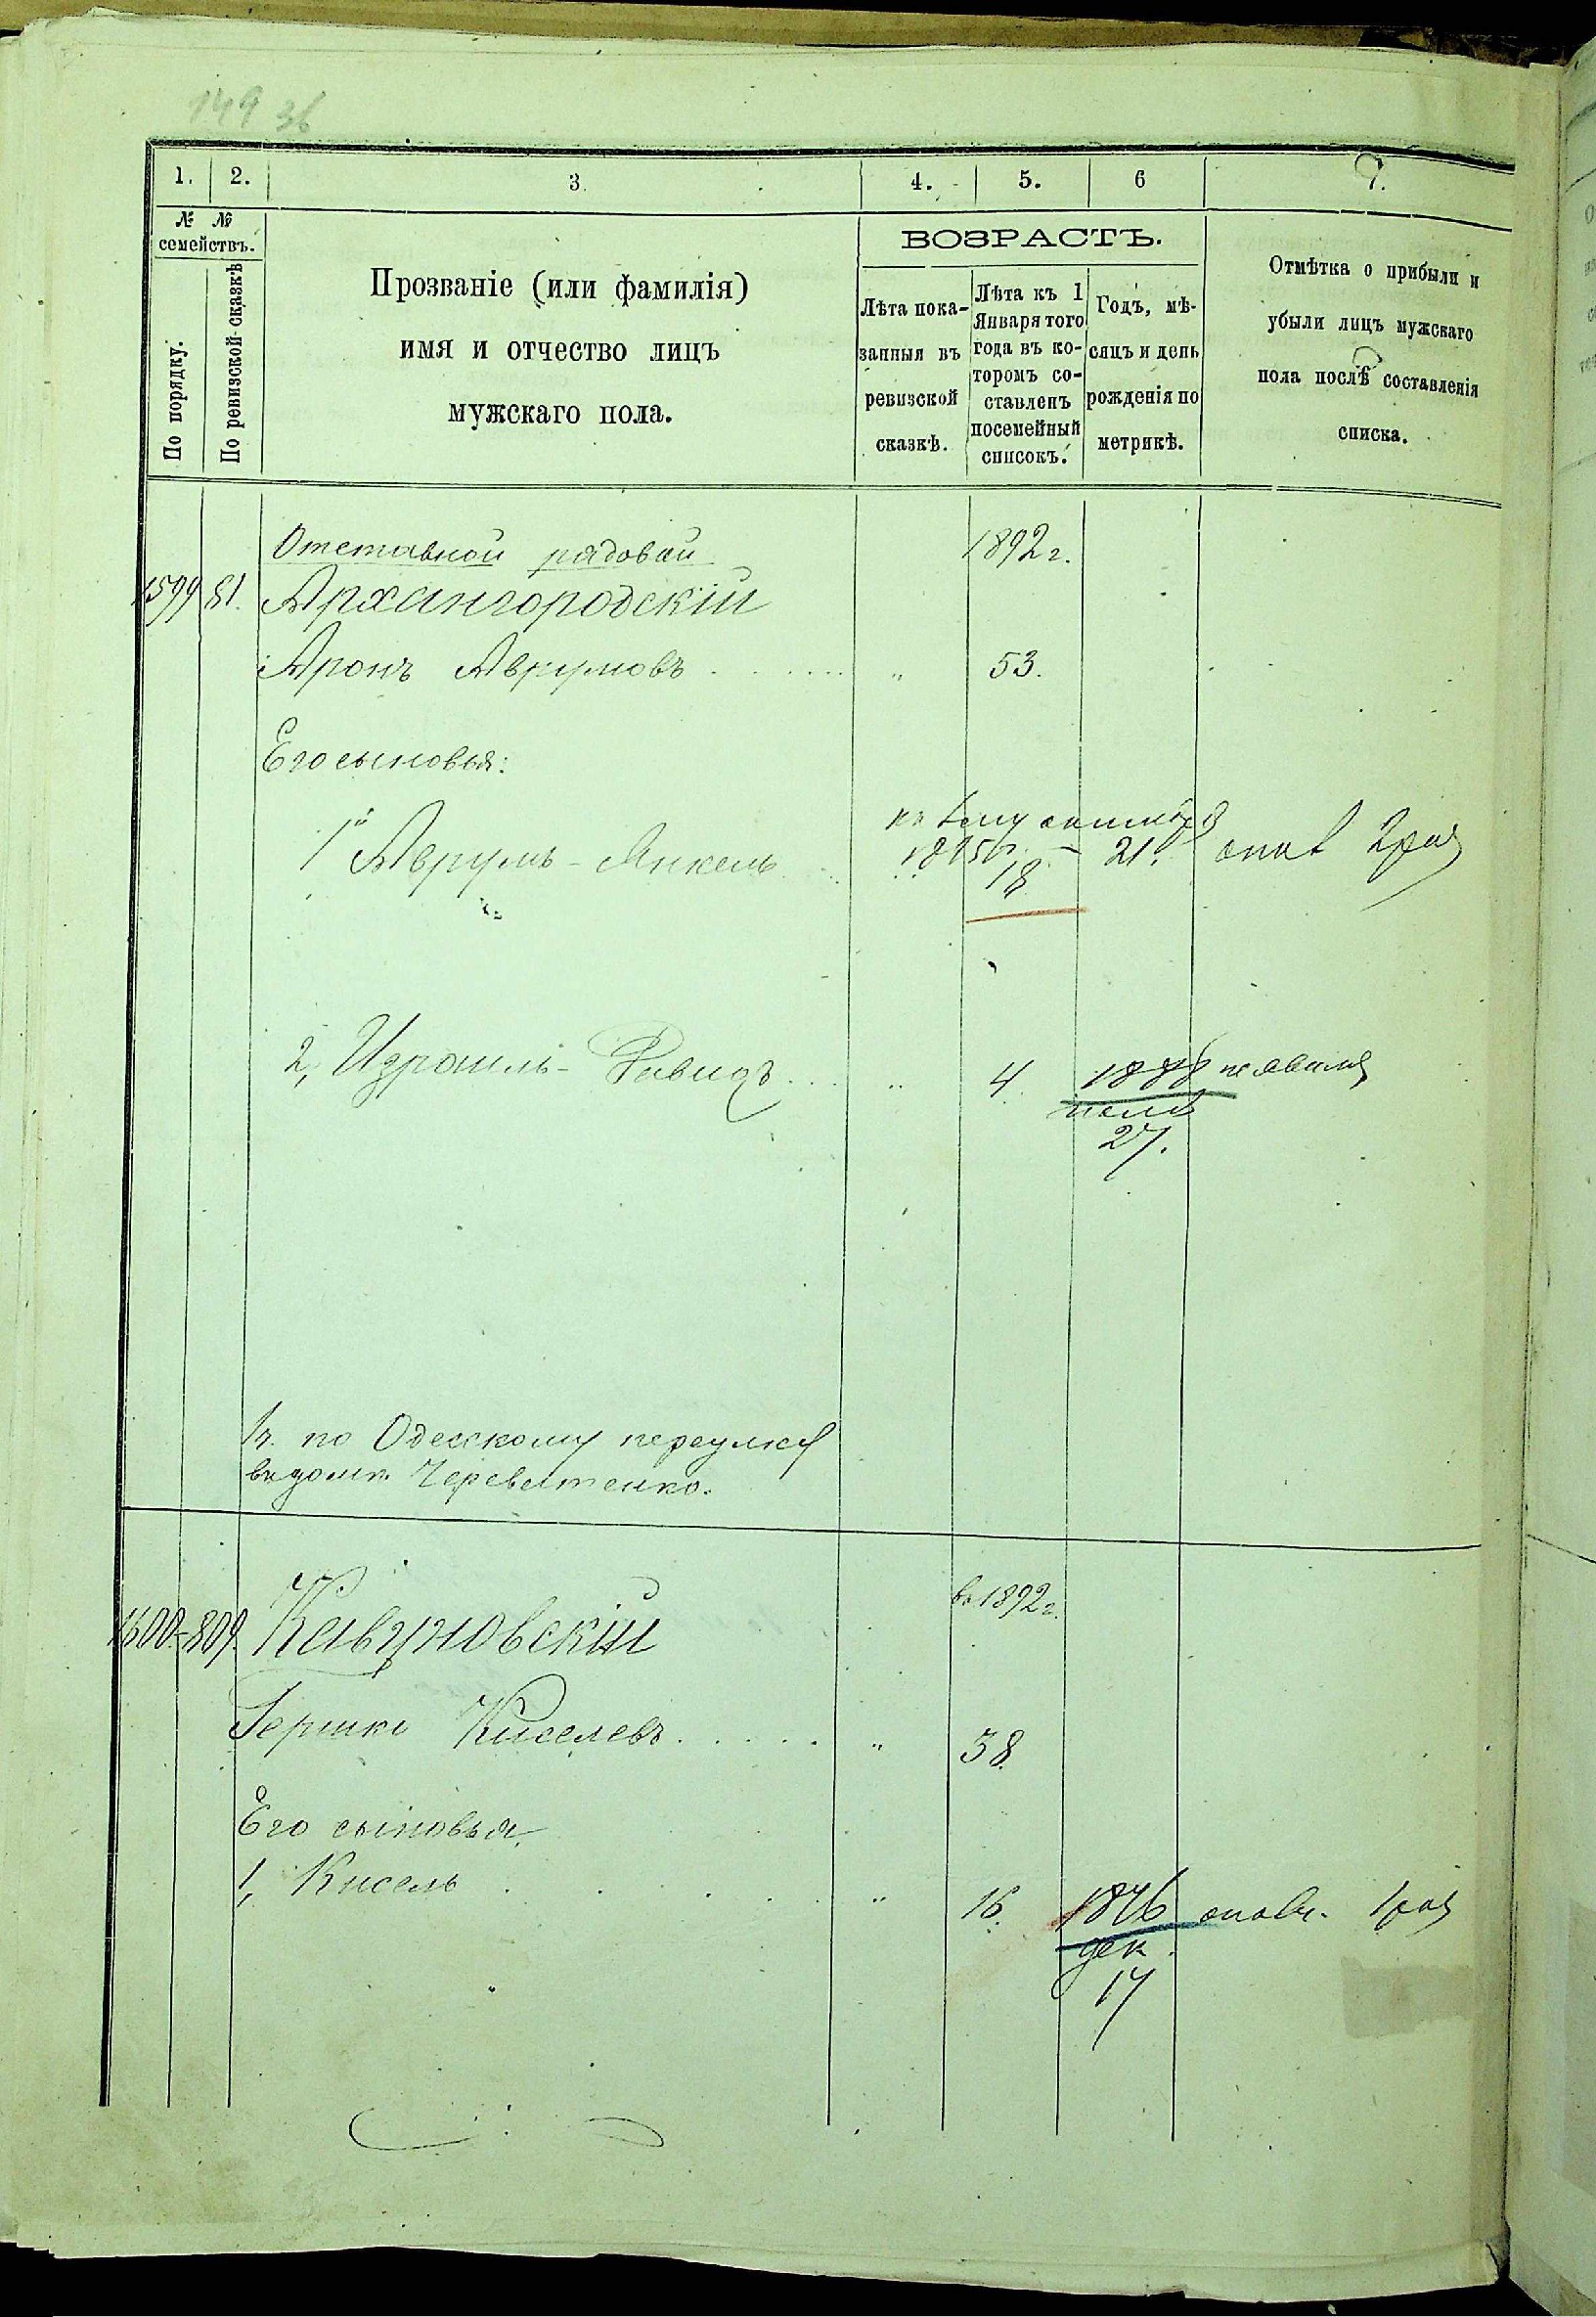 149 36
1. 2. 3. 4. 5. 6 7.
№ №
семействъ.
По порядку.
По ревизской сказкѣ
Прозваніе (или фамилія)
имя и отчество лицъ
мужскаго пола.
ВОЗРАСТЪ.
Лѣта пока-
занныя въ
ревизской
сказкѣ.
Лѣта къ 1
Января того
года въ ко-
торомъ со-
ставленъ
посемейный
списокъ.
Годъ, мѣ-
сяцъ и день
рожденія по
метрикѣ.
Отмѣтка о прибыли и
убыли лицъ мужскаго
пола послѣ составленія
списка.
Отставной рядовой 1892 г.
1599 81. Архангородскій
Аронъ Аврумовъ „ 53.
Его сыновья:
1 Аврумъ-Янкель
1895 г. – 21.
18
2, Израиль-Давидъ „ 4 1888
27.
по Одесскому переулку
въ домѣ
1600 809. Кавуновскій въ 1892 г.
Гершко Киселевъ „ 38.
Его сыновья
1, Кисель „ 16. 1876
дек.
17